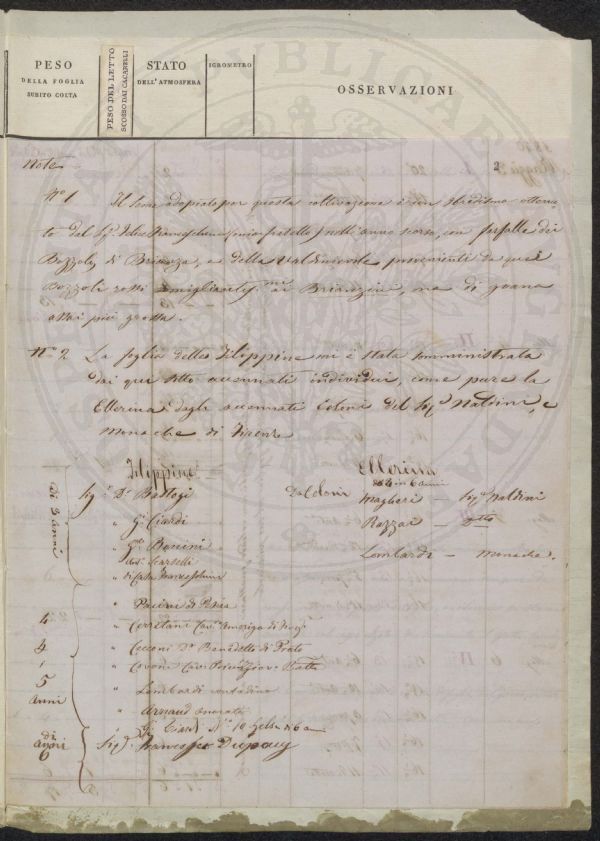 PESO DELLA FOGLIA SUBITO COLTA
PESO DEL LETTO SCOSSO DAI CACARELLI
STATO DELL'ATMOSFERA
IGROMETRO
OSSERVAZIONI
2
Note
N° 1 Il seme adoprato per questa coltivazione è un ibridismo ottenu-
to dal Sig. Felice Franceschini fratello nell'anno scorso, con farfalle dei
Bozzoli di Brianza, e della Valdinievole provenienti da quei
Bozzoli rossi ai Brianzini, ma di grana
assai più grossa.
N° 2 La foglia delle Filippine mi è stata somministrata
dai qui sotto accennati individui, come pure la
Ellerina dagli accennati Coloni del Sig. Naldini, e
Monache di
Filippine
Sig. Dr. Battogi
" Gi. Ciardi
" Bonini
Scarselli
" di Casa
" Pacini di Pescia
" Cerretani Cav. Amerigo di
" Cecconi Dr. Benedetto di Prato
" Cav.
" Lombardi contadino
" Arnaud
Ciardi N. 10 Gelsi di 6 anni
Sig. Francesco
Di 3 anni
4
4
5
Anni
di
Anni
6
Ellerina
di 4 in 6 anni
Da Coloni
Maglieri — Sig. Naldini
Razzai — Detto
Lombardi — Monache.